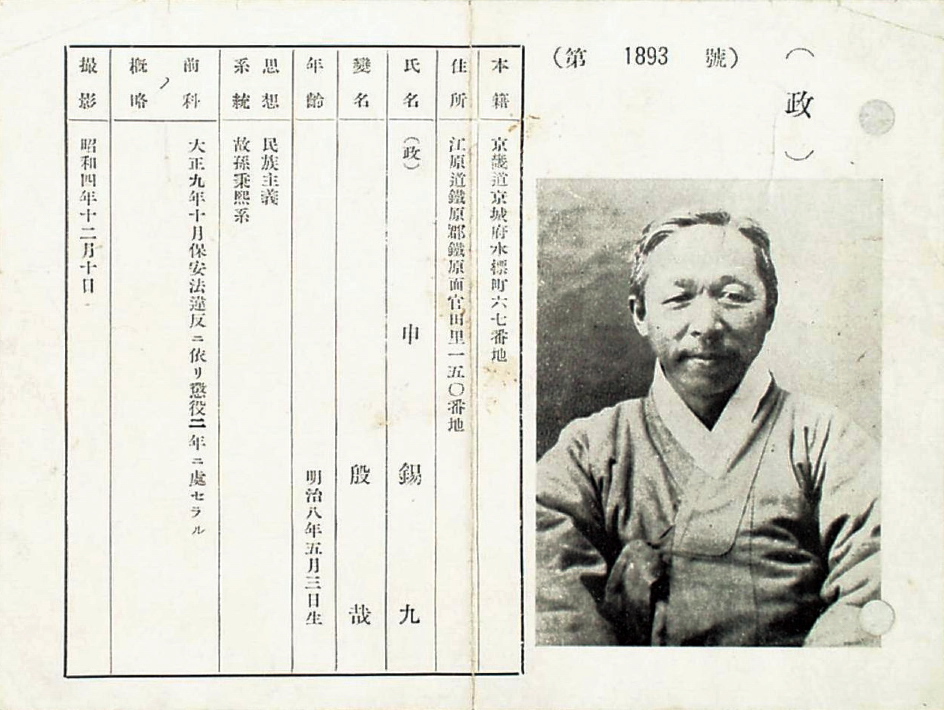 （政）
（第 1893 號）
本籍 京畿道京城府水標町六七番地
住所 江原道鐵原郡鐵原面官田里一五〇番地
氏名 （政） 申錫九
變名 殷哉
年齡 明治八年五月三日生
思想 民族主義
系統 故孫秉熙系
前科 大正九年十月保安法違反ニ依リ懲役二年ニ處セラル
概略
撮影 昭和四年十二月十日